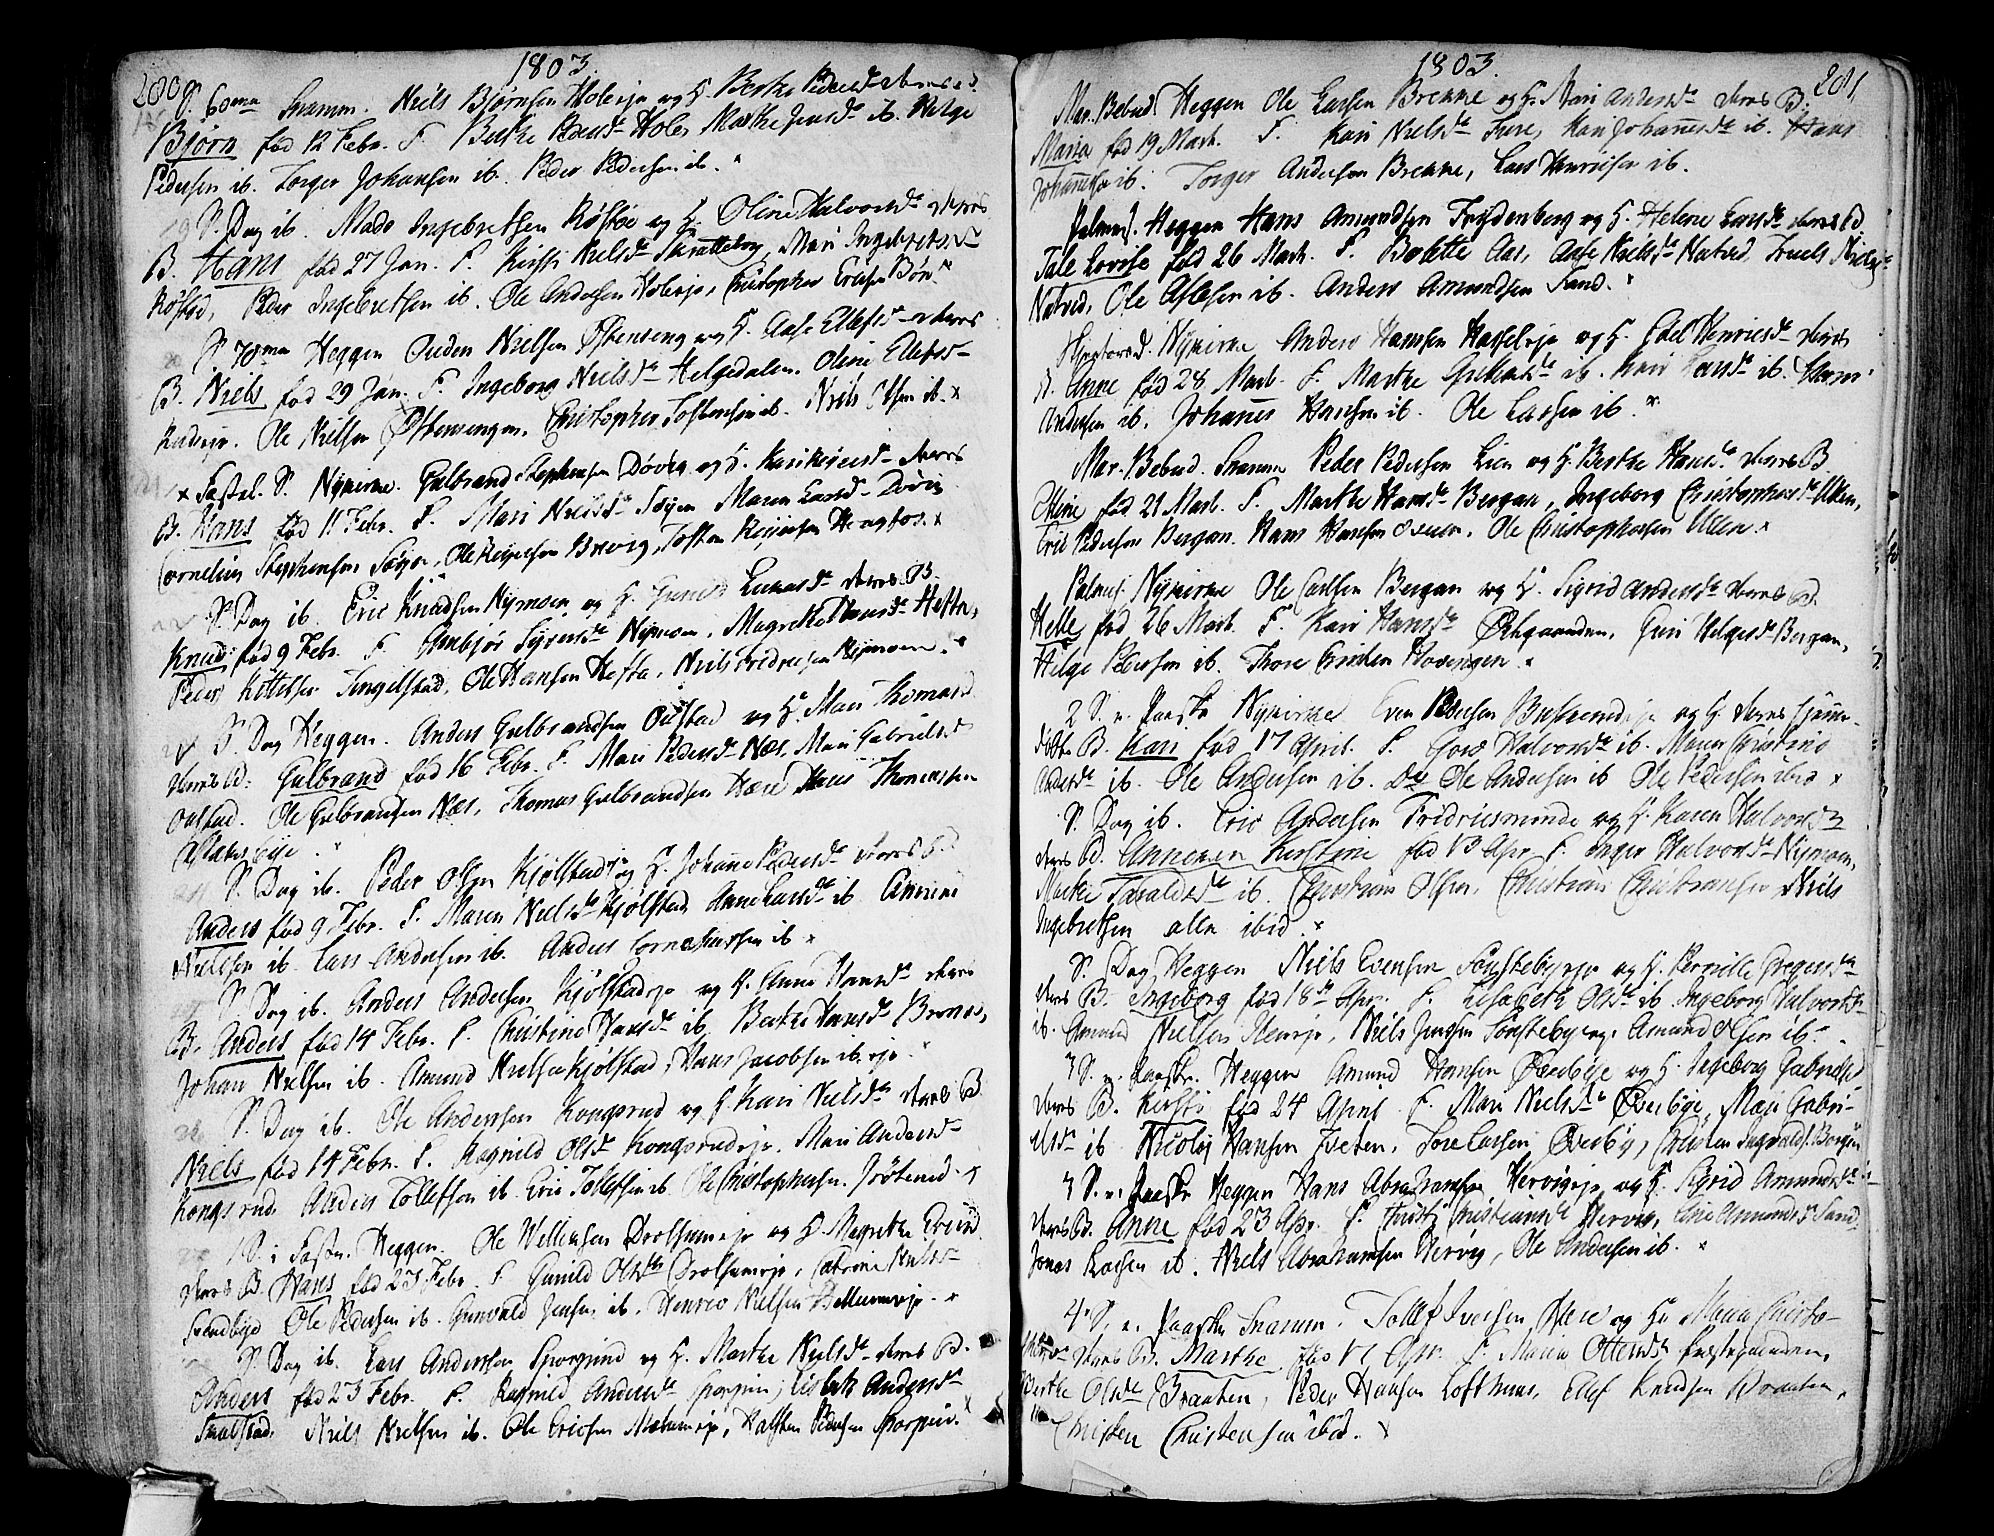 200
1803.
S. 60ma Snarum. Niels Bjørnsen Holerje og H. Berthe Pedersdr deres B.
Bjørn fød 12 Febr. F. Berthe Pedersdr Holer Marthe Jensdr ib. Helge
Pedersen ib. Torger Johansen ib. Peder Pedersen ib.
S. Dag ib. Mads Ingebretsen Røstøe og H. Oline Halvorsdr deres
B. Hans fød 27 Jan. F. Kirsti Nielsdr Skratteberg, Mari Ingebretsdr
Røstad, Peder Ingebretsen ib. Ole Andersen Holerje, Christopher Ericsen Bøn
S. 70ma Heggen Ouden Nielsen Østenseng og H. Aase Ellefsdr deres
B. Niels fød 29 Jan. F. Ingeborg Nielsdr Helgedalen. Oline Ellefsdr
Ole Nielsen Østensengen, Christopher Tostensen ib. Niels Olsen ib.
Fastel. S. Nykirke. Gulbrand Stephensen Døvig og H. Kari Reiersdr deres
B. Hans fød 11 Febr. F. Mari Nielsdr Søgen Maren Larsdr Døvig
Cornelius Stephensen Søgn, Ole Reiersen Brevig, Tosten Reiersen Hengfos.
S. Dag ib. Eric Knudsen Nymoen og H. Gunild Lucasdr deres B.
Knud fød 9 Febr. F. Gunbjør Syversdr Nymoen, Magrethe Hansdr Hefta,
Peder Kittilsen Tingelstad, Ole Hansen Hefta, Niels Fredricsen Nymoen.
S. Dag Heggen. Anders Gulbrandsen Oustad og H. Mari Thomasd
deres B. Gulbrand fød 16 Febr. F. Mari Pedersdr Næs, Mari Gabrielsdr
Oustad. Ole Gulbransen Næs, Thomas Gulbrandsen Hære Hans Thomassen
S. Dag ib. Peder Olsen Kjølstad og H. Johanne Pedersdr deres B.
Anders fød 9 Febr. F. Maren Nielsdr Kjølstad, Anne Larsdr ib.
Nielsen ib. Lars Andersen ib. Anders Corneliussen ib
S. Dag ib. Anders Andersen Kjølstadeje og H. Anne Hansdr deres
B. Anders fød 14 Febr. F. Christine Hansdr ib. Berthe Hansdr
Johan Nielsen ib. Amund Nielsen Kjølstad, Hans Jacobsen ib. eje.
S. Dag ib. Ole Andersen Kongsrud og H. Kari Nielsdr deres B.
Niels fød 14 Febr. F. Ragnild Olsdr Kongsrudeje, Mari Andersdr
Kongsrud Anders Tollefsen ib. Eric Tollefsen ib. Ole Christophersen
1 S. i Faste. Heggen. Ole Willumsen Drolsumeje og H. Magrethe Ericsd.
deres B. Hans fød 23 Febr. F. Gunild Olsdr Drolsumeje, Catrine Nielsdr
Svendbye Ole Pedersen ib. Gunvald Jensen ib. Henric Nielsen
S. Dag ib. Lars Andersen Sporpind og H. Marthe Nielsdr deres B.
Anders fød 23 Febr. F. Ragnild Andersdr Sporpin, Lisbeth Andersdr
Niels Nielsen ib. Ole Ericsen Halsten Pedersen Sporpin.
1803.
201
Mar. Bebud. Heggen Ole Larsen Brekke og H. Mari Andersdr deres B.
Maria fød 19 Mart. F. Kari Nielsdr Fure, Kari Johannesdr ib. Hans
Johannesen ib. Torger Andersen Brekke, Lars Henricsen ib.
Palmes. Heggen Hans Amundsen Frydenberg og H. Helene Larsdr deres B.
Tale Lovise fød 26 Mart. F. Bolette Aas, Aase Nielsdr Natved, Truels Nielsen
Natved, Ole Aslesen ib. Anders Amundsen Sand.
Skjertorsd. Nykirke Anders Hansen Hasseleje og H. Edel Henricsdr deres
B. Anne fød 28 Mart. F. Marthe ib. Kari Larsdr ib. Hans
Andersen ib. Johannes Hansen ib. Ole Larsen ib.
Mar. Bebud. Snarum Peder Pedersen Lien og H. Berthe Hansdr deres B.
Oline fød 21 Mart. F. Marthe Hansdr Bergan, Ingeborg Christophersdr Ullen,
Eric Pedersen Bergan. Hans Hansen Ole Christophersen Ullen
Palmes. Nykirke Ole Carlsen Bergan og H. Sigrid Andersdr deres B.
Helle fød 26 Mart. F. Kari Hansdr Guri Helgesdr Bergan,
Helge Pedersen ib. Thore
2 S. e. Paaske Nykirke Even Pedersen Buskerudeje og H. deres hjemme-
døbte B. Kari fød 17 April. F. Goro Halvorsdr ib. Maren Christine
Andersdr ib. Ole Andersen ib. Ole Andersen ib Ole Pedersen ibid
S. Dag ib. Eric Andersen Fredricsminde og H. Karen Halvorsdr
deres B. Anneken Kirstine fød 13 Apr. F. Inger Halvorsdr Nymoen,
Marthe Taraldsdr ib. Christian Olsen, Christian Christiansen Niels
Ingebretsen alle ibid.
S. Dag Heggen Niels Evensen Sønstebyeje og H. Pernille Gregersdr
deres B. Ingeborg fød 18de Apr. F. Lisabeth Olsdr ib Ingeborg Halvorsdr
ib. Amund Nielsen Niels Jensen Sønstebye eje Amund Olsen ib.
3 S. e. Paaske. Heggen Amund Hansen Øverbye og H. Ingeborg Gabrielsd
deres B. Kirsti fød 24 April F. Mari Nielsdr Øverbye, Mari Gabri-
elsdr ib Nicolaj Hansen Tveten, Tore Larsen Øverby,
3 S. e. Paaske Heggen Hans Abrahamsen Hervigeje og H. Sigrid Amundsdr
deres B. Anne fød 23 Apr. F. Kirsti Christiansdr Hervig, Amundsdr Sand.
Jonas ib. Niels Abrahamsen Hervig, Ole Andersen ib.
4 S. e. Paaske Snarum. Tollef Iversen Hære og H. Maria Christo-
deres B. Marthe fød Apr. F. Maria Ottersdr
Berthe Olsdr Braaten, Peder Hansen Lofthuus, Elef Knudsen Braaten,
Christen Christensen ibid.